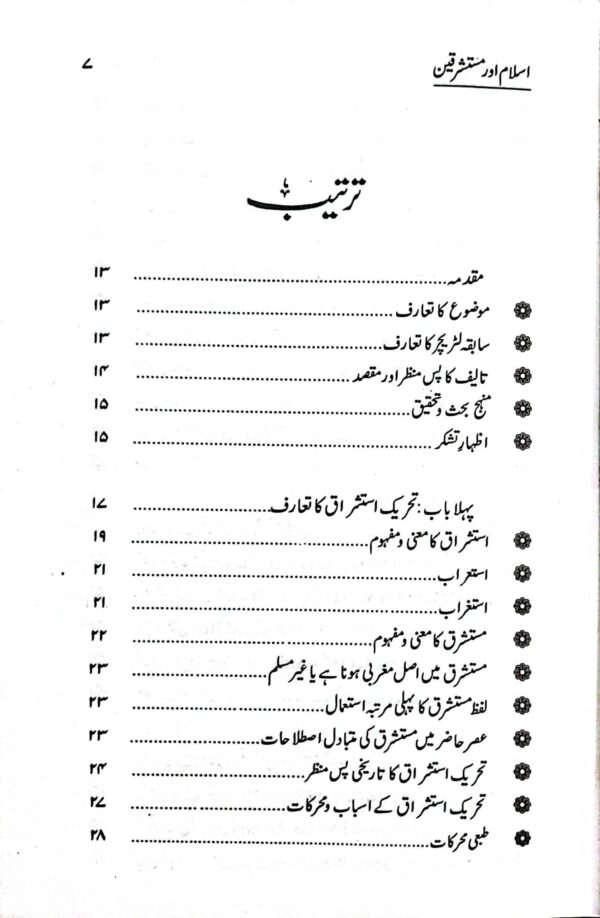 اسلام اور مستشرقین ۷
ترتیب
مقدمہ ۱۳
موضوع کا تعارف ۱۳
سابقہ لٹریچر کا تعارف ۱۳
تالیف کا پس منظر اور مقصد ۱۴
منہج بحث و تحقیق ۱۵
اظہارِ تشکر ۱۵
پہلا باب: تحریک استشراق کا تعارف ۱۷
استشراق کا معنی و مفہوم ۱۹
استعراب ۲۱
استغراب ۲۱
مستشرق کا معنی و مفہوم ۲۲
مستشرق میں اصل مغربی ہونا ہے یا غیر مسلم ۲۳
لفظ مستشرق کا پہلی مرتبہ استعمال ۲۳
عصر حاضر میں مستشرق کی متبادل اصطلاحات ۲۳
تحریک استشراق کا تاریخی پس منظر ۲۴
تحریک استشراق کے اسباب و محرکات ۲۷
طبعی محرکات ۲۸